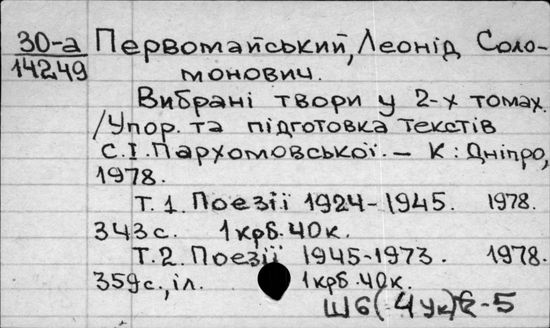 30-а Первомайський, Леонід Соло-
14249 монович.
Вибрані твори у 2-х томах.
/Упор. та підготовка текстів
С.І. Пархомовської. – К: Дніпро,
1978.
Т. 1. Поезії 1924-1945. 1978.
343с. 1 крб. 40к.
Т. 2. Поезії 1945-1973. 1978.
359с., іл. 1 крб. 40к.
Ш6(4Ук)